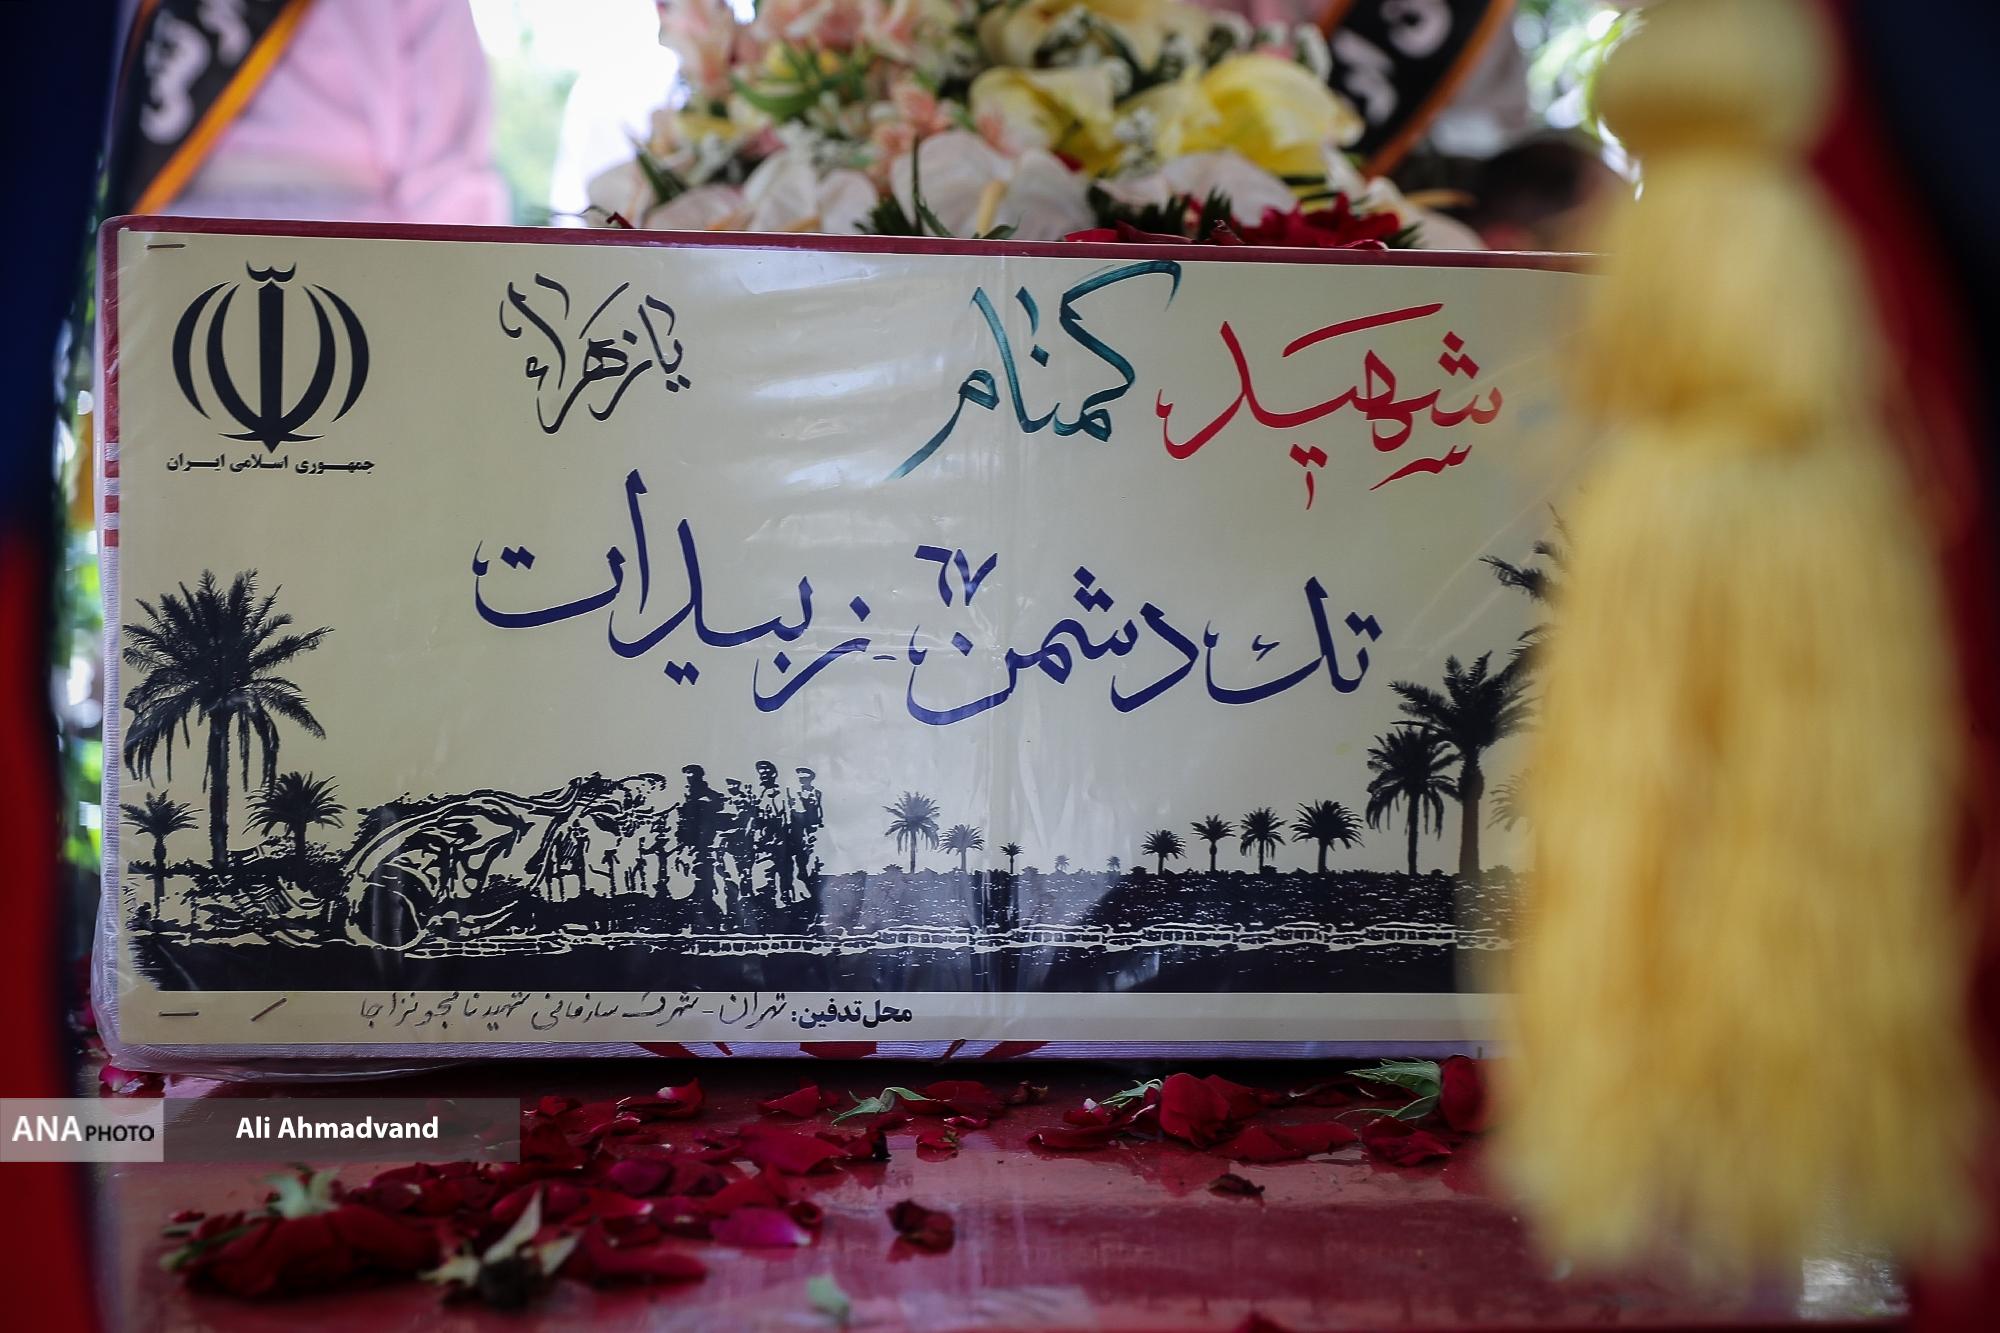 شهید گمنام
یا زهراء
جمهوری اسلامی ایران
تك دشمن ۶۷ - زبیدات
محل تدفین: تهران - شهرک سازمانی شهید نامجو نزاجا
ANA PHOTO
Ali Ahmadvand